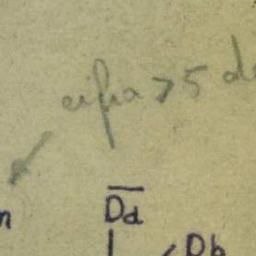 cifra > 5 de
n
D̅d̅
Db